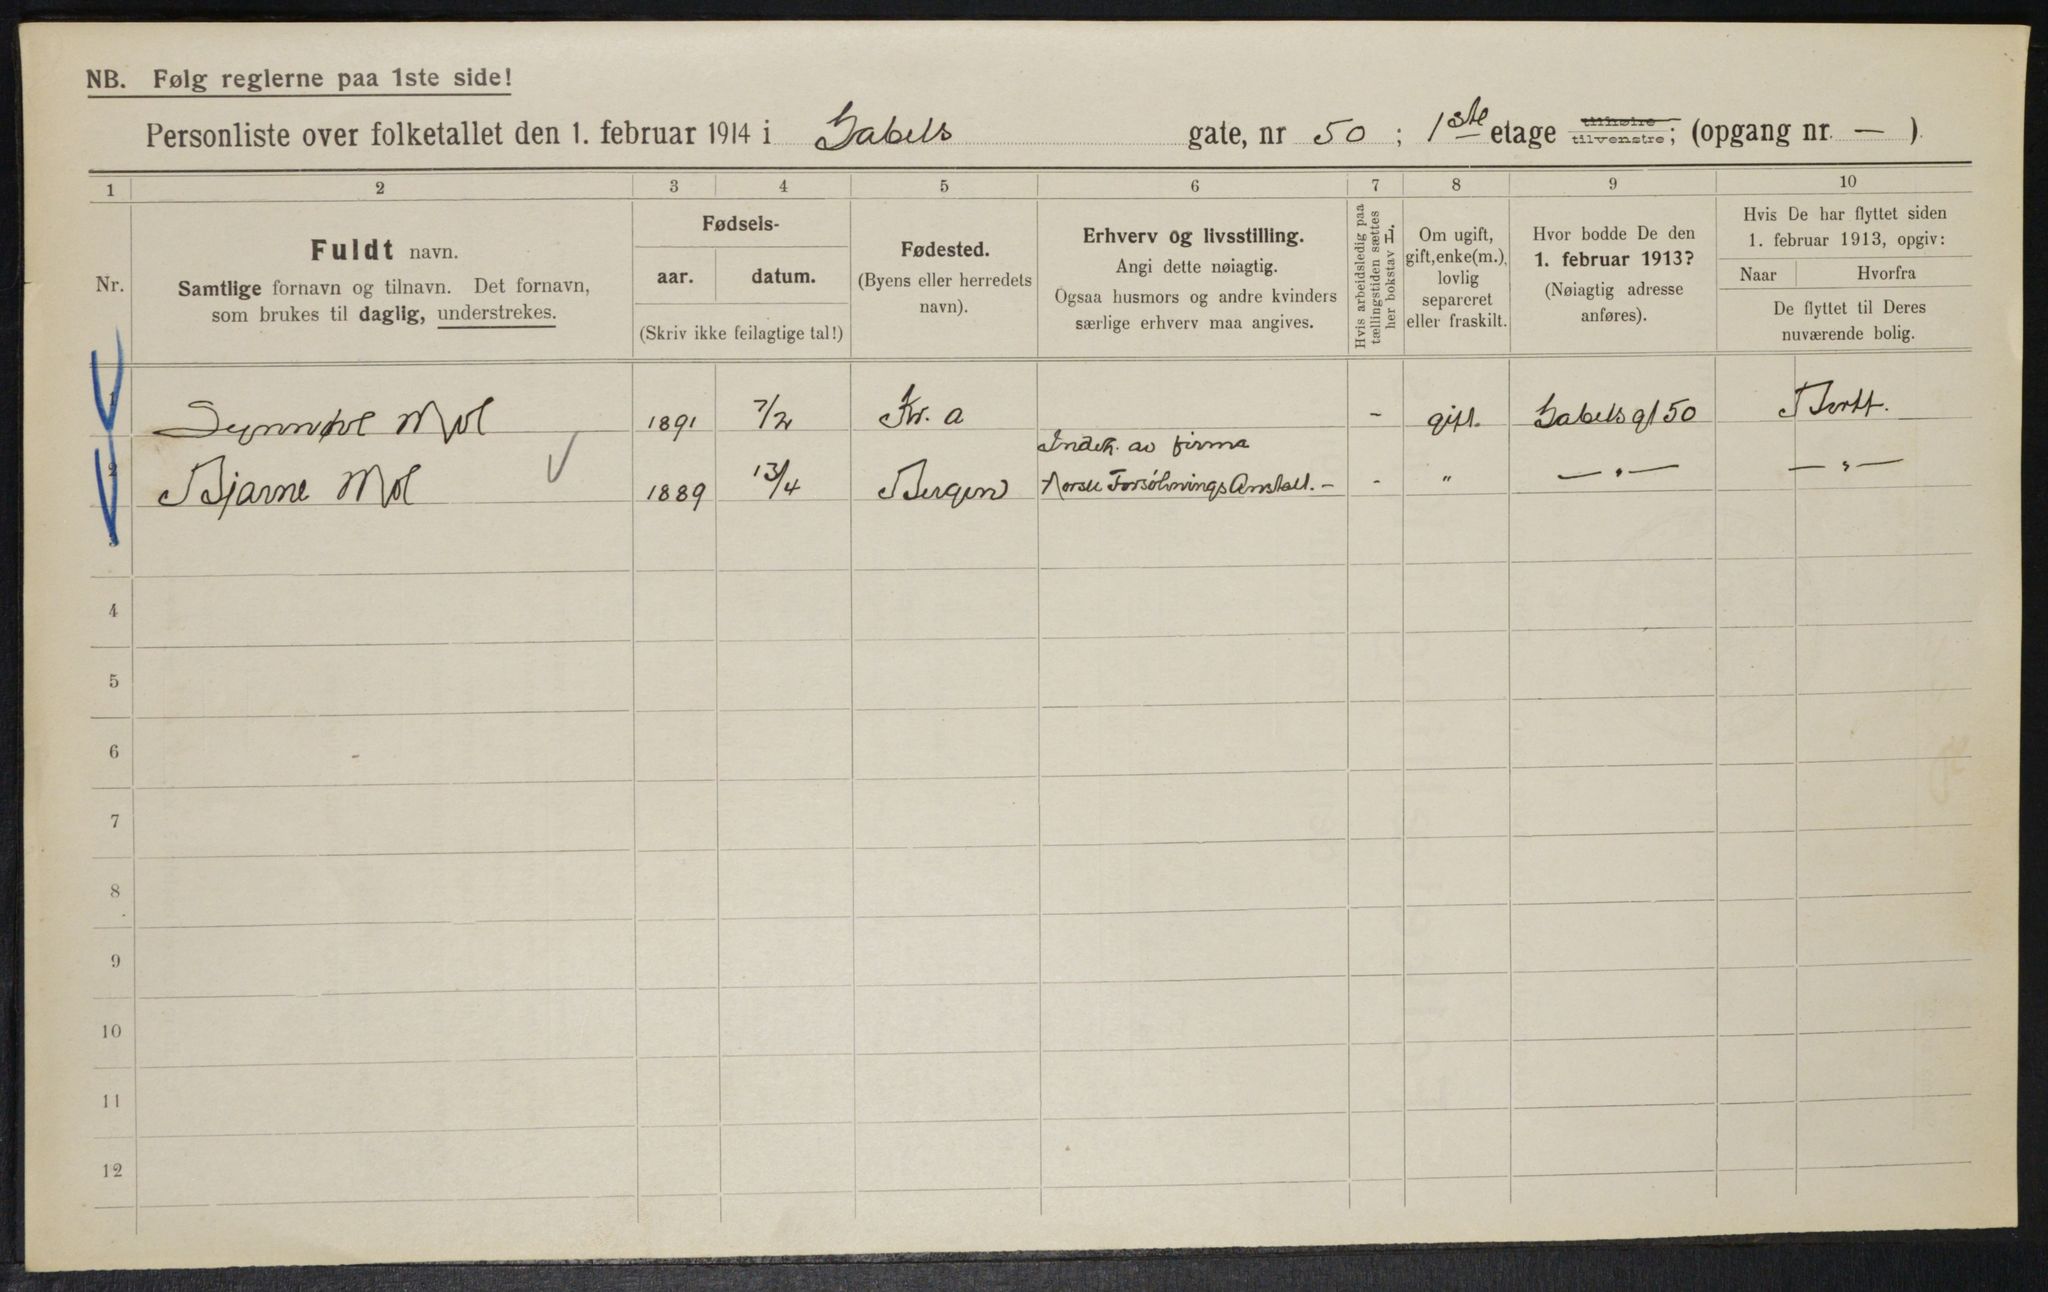 NB. Følg reglerne paa 1ste side!
Personliste over folketallet den 1. februar 1914 i Gabels gate, nr 50 ; 1ste etage tilhøire tilvenstre; (opgang nr. — ).
1 2 3 4 5 6 7 8 9 10
Nr.
Fuldt navn.
Samtlige fornavn og tilnavn. Det fornavn,
som brukes til daglig, understrekes.
Fødsels-
aar. datum.
(Skriv ikke feilagtige tal!)
Fødested.
(Byens eller herredets
navn).
Erhverv og livsstilling.
Angi dette nøiagtig.
Ogsaa husmors og andre kvinders
særlige erhverv maa angives.
Hvis arbeidsledig paa
tællingstiden sættes
her bokstav L.
Om ugift,
gift, enke(m.),
lovlig
separeret
eller fraskilt.
Hvor bodde De den
1. februar 1913?
(Nøiagtig adresse
anføres).
Hvis De har flyttet siden
1. februar 1913, opgiv:
Naar Hvorfra
De flyttet til Deres
nuværende bolig.
1 Synnøve Mol 1891 7/2 Kr. a - gift. Gabels gt 50
2 Bjarne Mol 1889 13/4 Bergen Indeh. av firma
Norsk Forsølvnings Anstalt. - - " — " — — " —
3
4
5
6
7
8
9
10
11
12